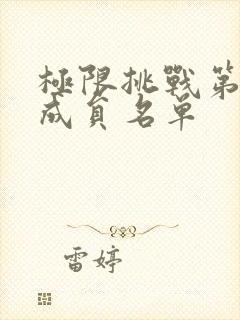 極限挑戰第
成員名單
雷婷